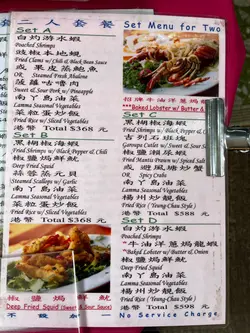 二人套餐 Set Menu for Two
Set A
白灼游水蝦
Poached Shrimps
豉椒本地蜆
Fried Clams w/ Chili & Black Bean Sauce
或 果皮蒸鮑魚
OR Steamed Fresh Abalone
菠蘿咕嚕肉
Sweet & Sour Pork w/ Pineapple
南丫島油菜
Lamma Seasonal Vegetables
菜粒蛋炒飯
Fried Rice w/ Sliced Vegetables
港幣 Total $368 元
Set B
黑胡椒海蝦
Fried Shrimps w/ Black Pepper & Chili
椒鹽焗鮮魷
Deep Fried Squid
蒜蓉蒸元貝
Steamed Scallops w/ Garlic
南丫島油菜
Lamma Seasonal Vegetables
菜粒蛋炒飯
Fried Rice w/ Sliced Vegetables
港幣 Total $388 元
椒鹽焗鮮魷
Deep Fried Squid (Sweet & Sour Sauce)
招牌牛油洋蔥焗龍蝦
Baked Lobster w/ Butter &
Set C
黑胡椒海蝦
Fried Shrimps w/ Black Pepper & Chili
Garoupa Cutlet w/ Sweet & Sour
椒鹽瀨尿蝦
Fried Mantis Prawn w/ Spiced Salt
或 避風塘炒蟹
OR Spicy Crabs
南丫島油菜
Lamma Seasonal Vegetables
楊州炒飯
Fried Rice (Yeung Chau Style)
港幣 Total $588 元
Set D
白灼游水蝦
Poached Shrimps
*牛油洋蔥焗龍蝦
*Baked Lobster w/ Butter & Onion
椒鹽焗鮮魷
Deep Fried Squid
南丫島油菜
Lamma Seasonal Vegetables
楊州炒飯
Fried Rice (Yeung Chau Style)
港幣 Total $598 元
No Service Charge